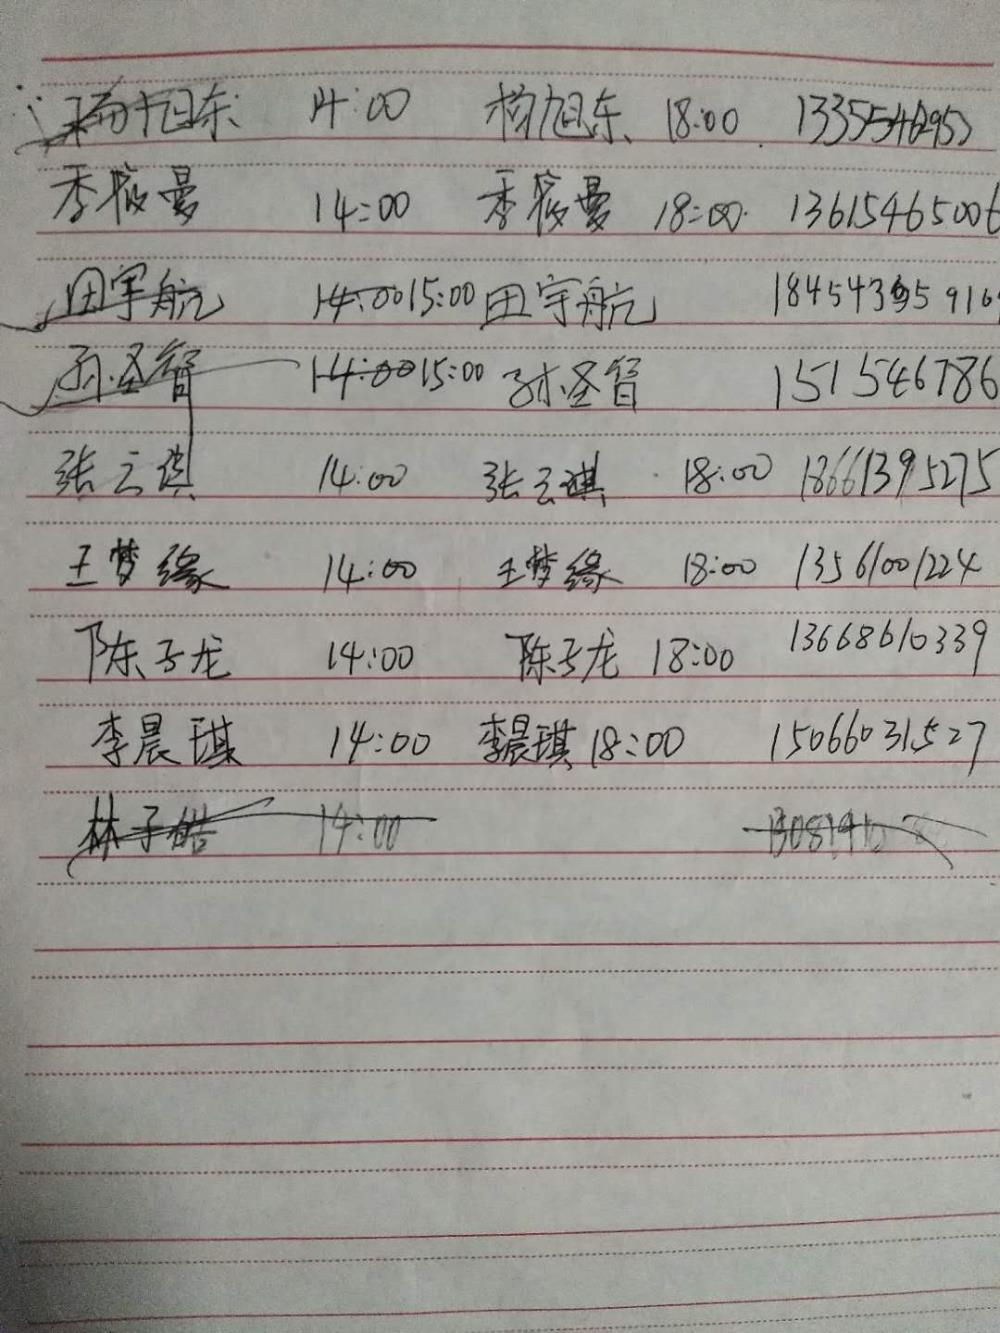 杨旭东 14:00 杨旭东 18:00
季筱曼 14:00 季筱曼 18:00 13615465006
田宇航 14:00 15:00 田宇航
孙圣智 14:00 15:00 孙圣智 151546786
张云琪 14:00 张云琪 18:00 18661395275
王梦缘 14:00 王梦缘 18:00 13561001224
陈子龙 14:00 陈子龙 18:00 13668610339
李晨琪 14:00 李晨琪 18:00 15066031527
林子皓 14:00